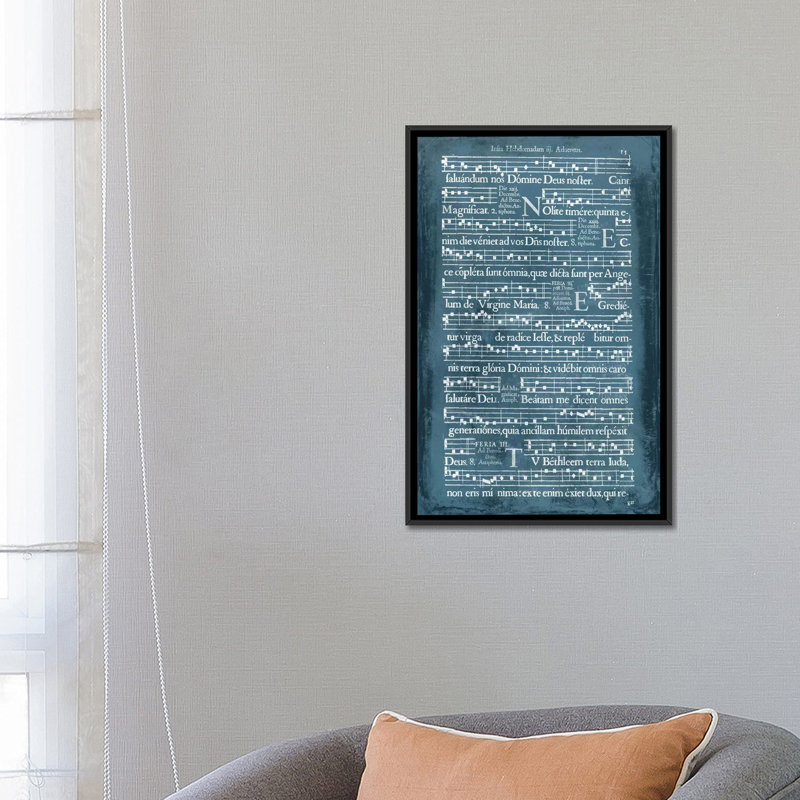 Infra Hebdomadam iij. Aduentus. 15
ſaluándum nos Dómine Deus noſter. Cant
Magnificat. 2. Die xxj. Decembr. Ad Bene- dictus, An- tiphona. NOlíte timére: quinta e-
nim die véniet ad vos Dñs noſter. 8. Die xxiij. Decemb. Ad Bene- dictus, An- tiphona. EC-
ce cõpléta ſunt ómnia, quæ dicta ſunt per Ange-
lum de Virgine María. 8. FERIA Aduentus, Antiph. EGredié-
tur virga de radíce Ieſſe, & replé bitur om-
nis terra glória Dómini: & vidébit omnis caro
ſalutáre Dei. Ad Ma- gnificat Antiph. Beátam me dicent omnes
generatiónes, quia ancíllam húmilem reſpéxit
Deus. 8. FERIA III. Antiphona. TV Béthleem terra Iuda,
non eris mí nima: ex te enim éxiet dux, qui re-